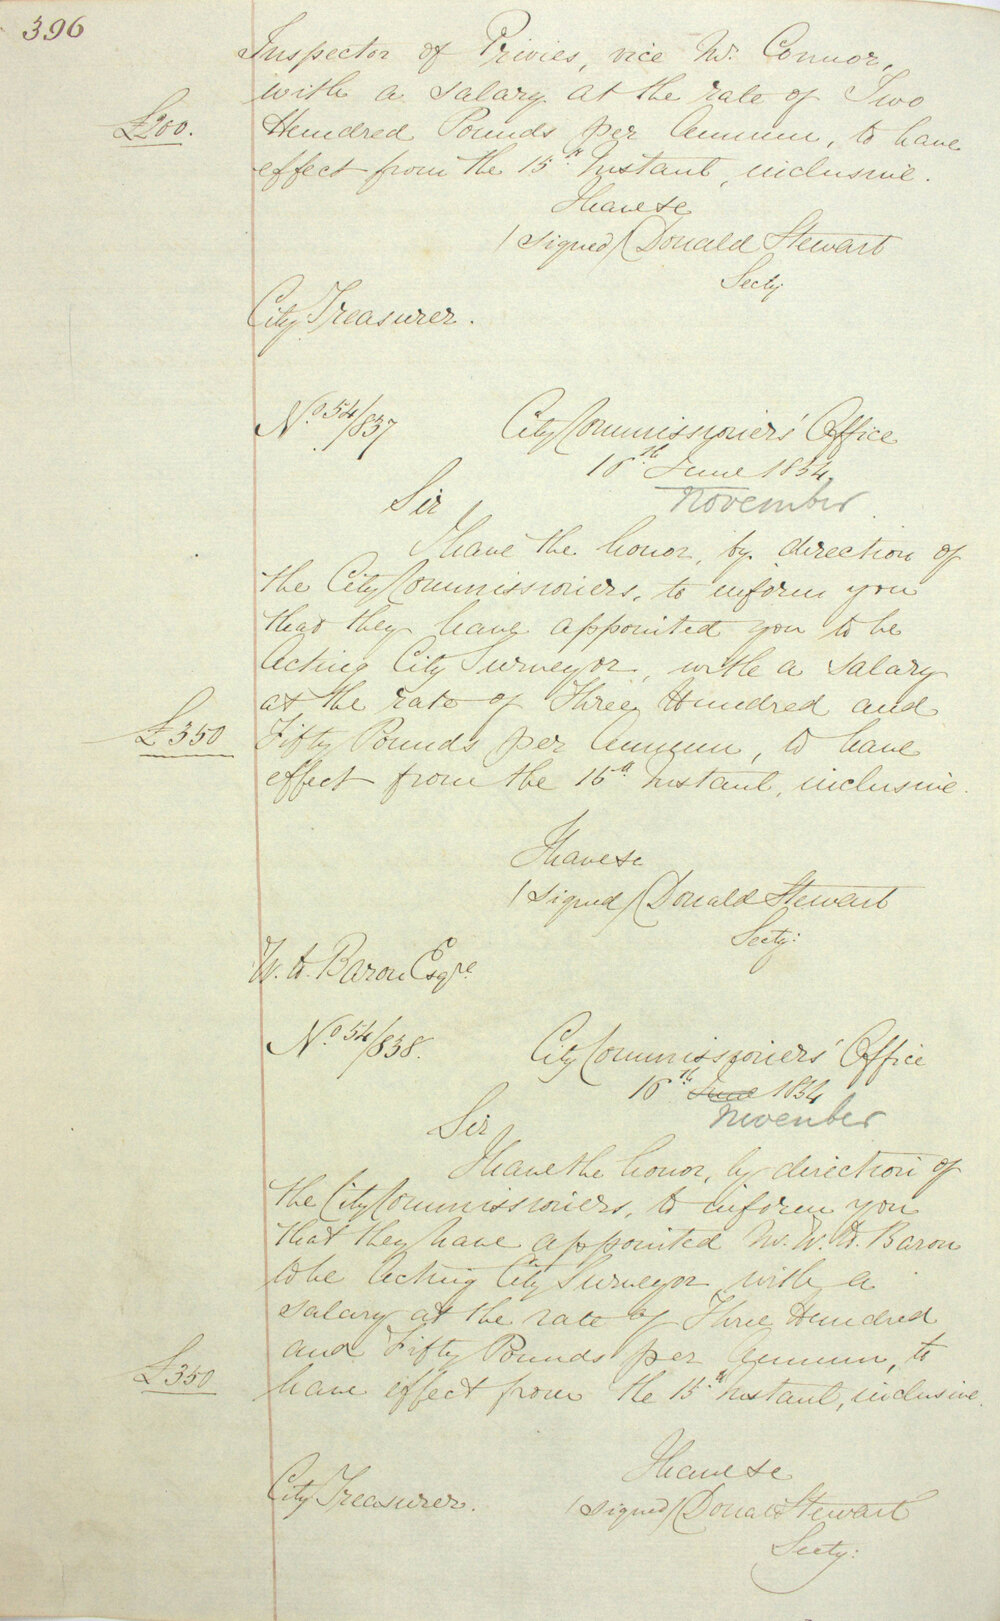 396
Inspector of Privies, vice Mr. Connor,
with a salary at the rate of Two
£200.
Hundred Pounds per Annum, to have
effect from the 15th Instant, inclusive.
I have &c
(signed) Donald Stewart
Secty
City Treasurer.
No. 54/837
City Commissioners' Office
16th June 1854.
November
Sir,
I have the honor, by direction of
the City Commissioners, to inform you
that they have appointed you to be
Acting City Surveyor, with a salary
at the rate of Three Hundred and
£350
Fifty Pounds per Annum, to have
effect from the 15th Instant, inclusive.
I have &c
(signed) Donald Stewart
Secty:
W. H. Baron Esqre.
No. 54/838.
City Commissioners' Office
16th June 1854
November
Sir,
I have the honor, by direction of
the City Commissioners, to inform you
that they have appointed Mr. W. H. Baron
to be Acting City Surveyor with a
salary at the rate of Three Hundred
and Fifty Pounds per Annum, to
£350
have effect from the 15th Instant, inclusive.
I have &c
City Treasurer.
(signed) Donald Stewart
Secty: